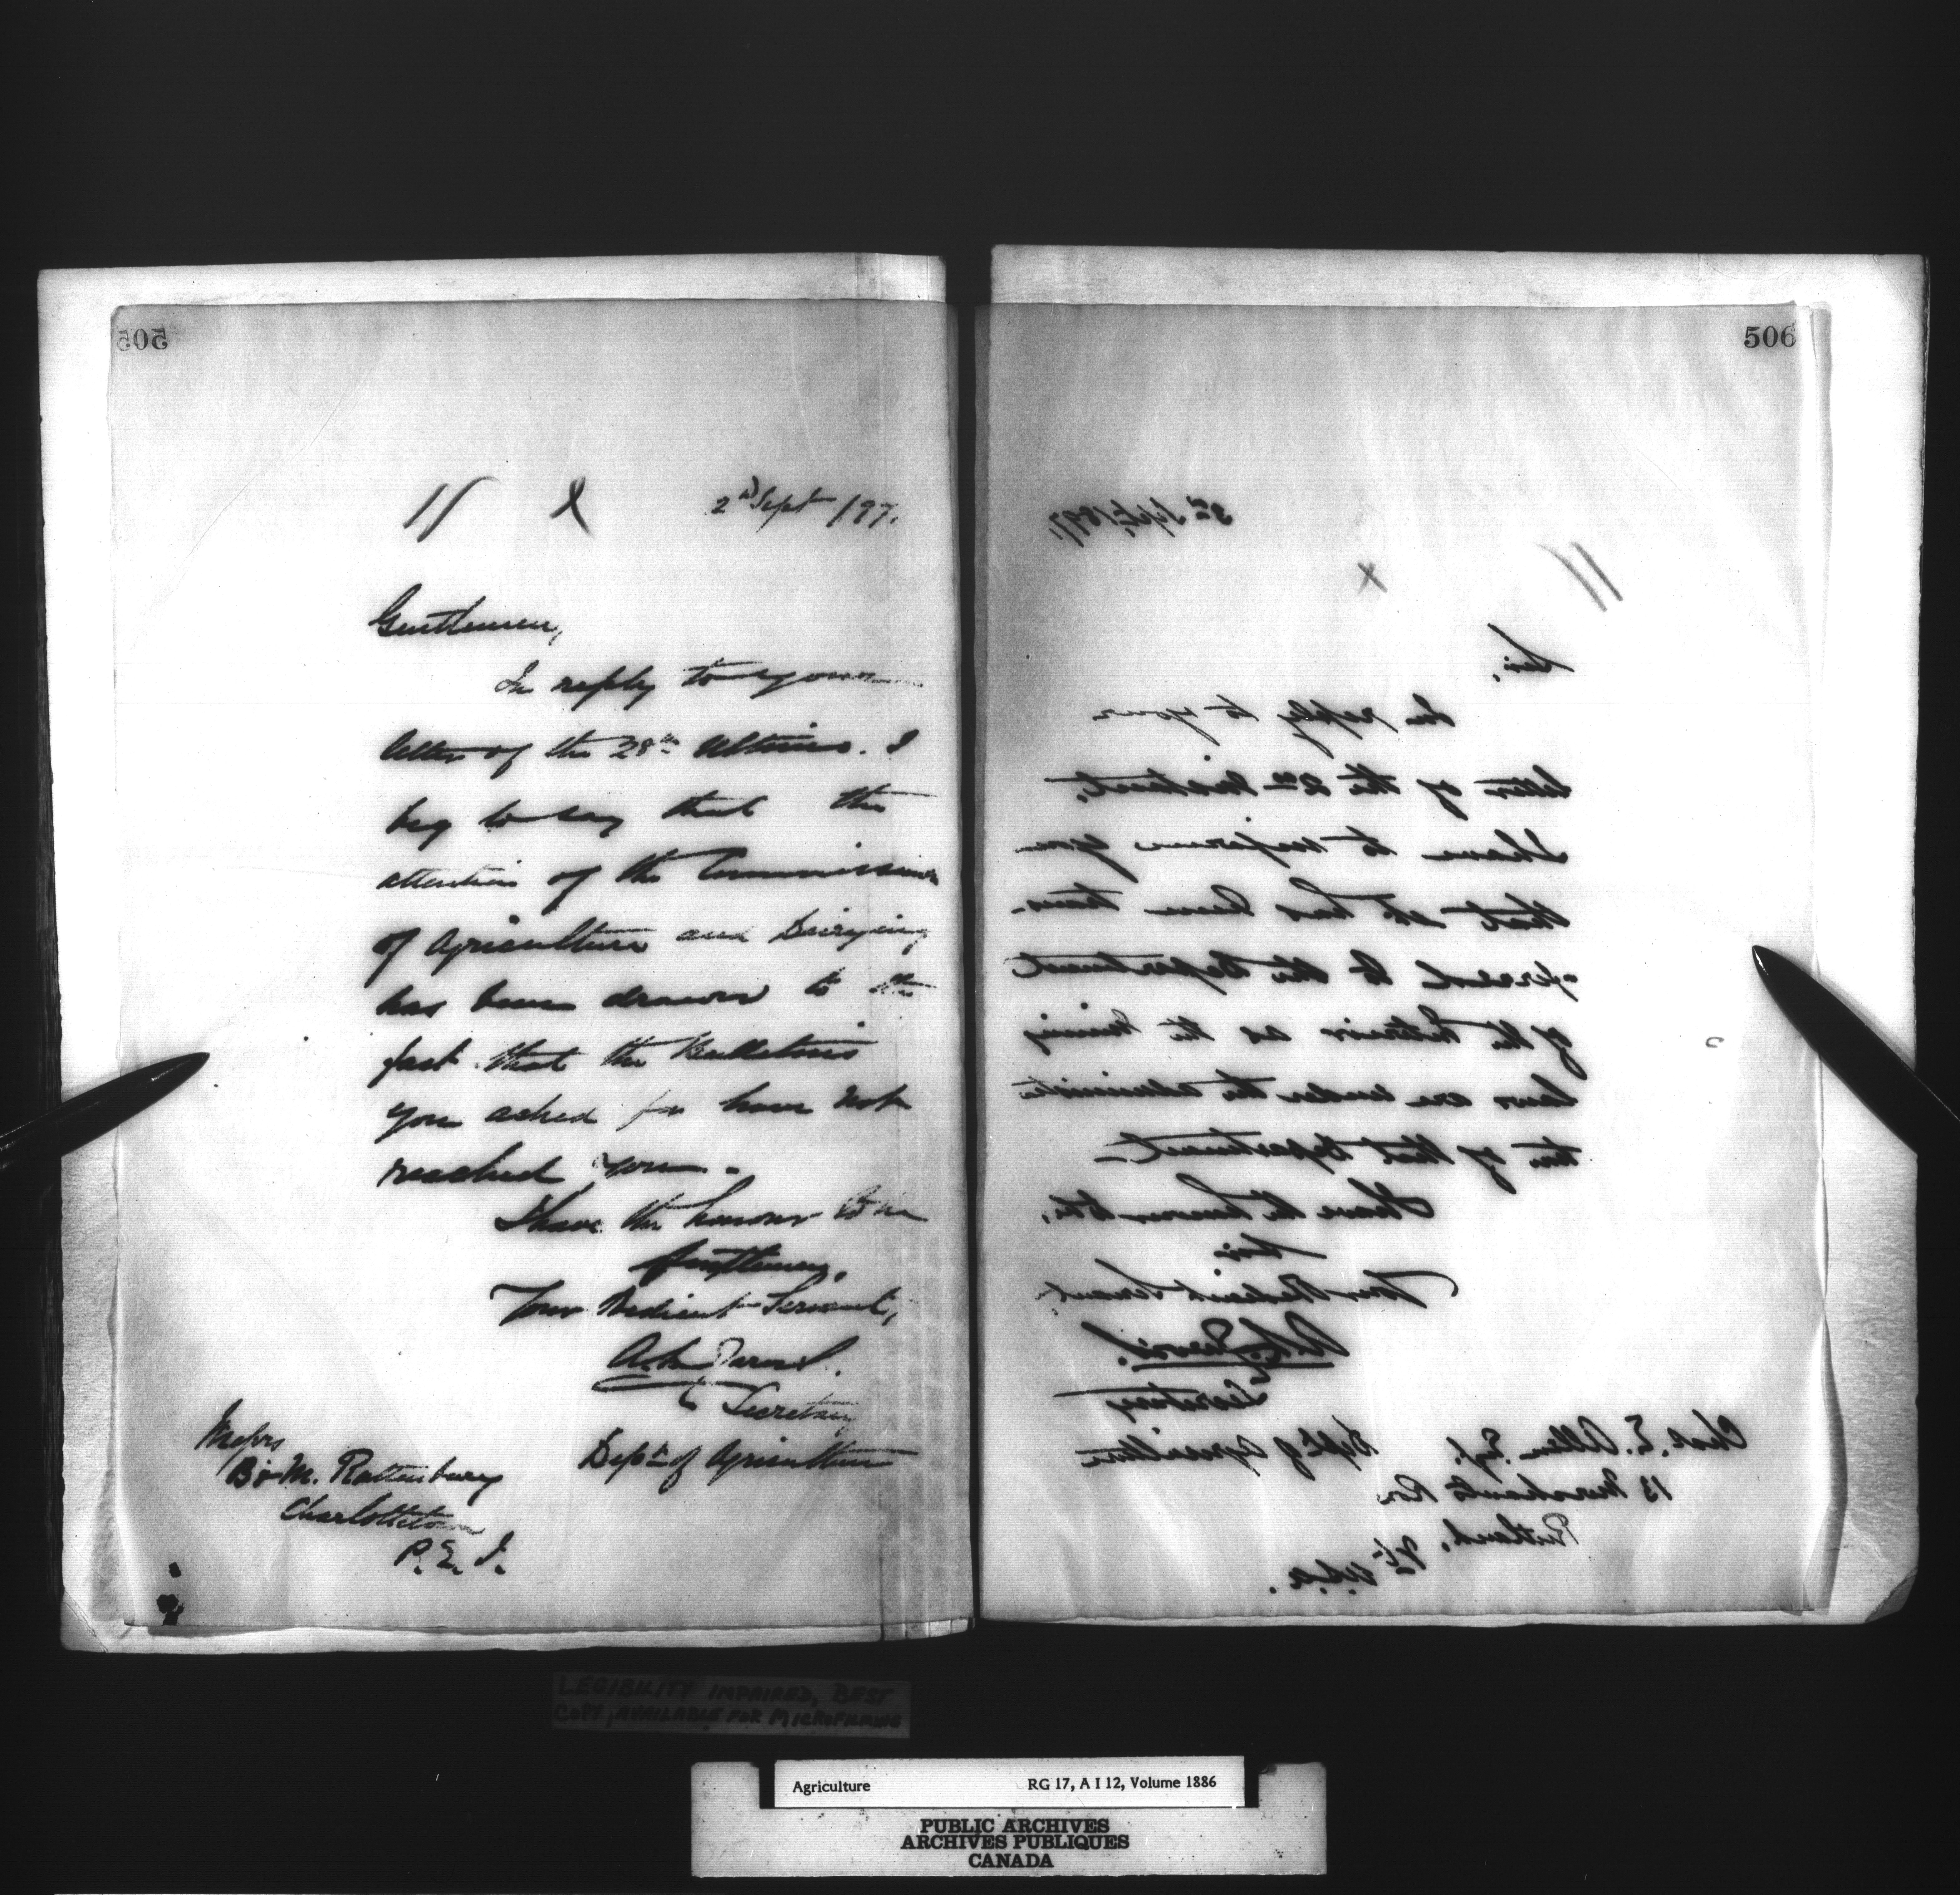 505
2nd Sept /97.
Gentlemen,
In reply to your
letter of the 28th Ultimo. I
beg to say that the
attention of the Commissioner
of Agriculture and Dairying
has been drawn to the
fact that the Bulletins
you asked for have not
reached you.
I have the honour to be
Gentlemen,
Your Obedient Servant,
Secretary
Dept. of Agriculture
Messrs
B & M. Rattenbury
Charlottetown
P. E. I.
506
3rd Sept. 1897,
Sir,
In reply to your
letter of the 2nd instant,
I have to inform you
that it has been trans-
-ferred to the Department
of the Interior as the Mining
laws are under the administra
tion of that Department
I have the honour to be,
Sir
Your Obedient Servant,
Secretary
Dept. of Agriculture
Chas. E. Allen Esq.
13 Merchants Row
Rutland, Vt. U.S.a.
LEGIBILITY IMPAIRED, BEST
COPY AVAILABLE FOR MICROFILMING
Agriculture RG 17, A I 12, Volume 1886
PUBLIC ARCHIVES
ARCHIVES PUBLIQUES
CANADA